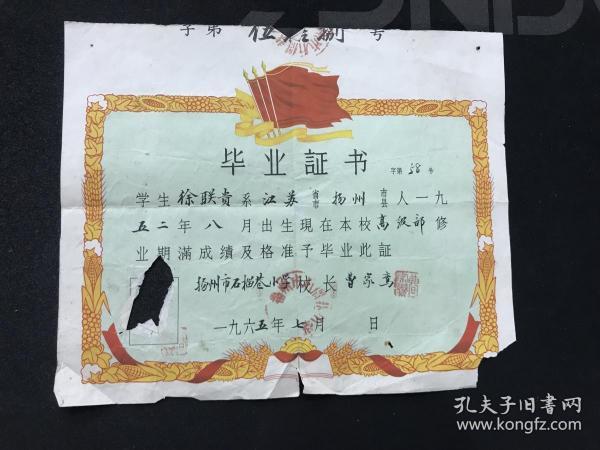 字第 伍 捌 号
毕业証书
字第 58 号
学生 徐联贵 系 江苏 省市 扬州 市县 人一九
五二年八月出生現在本校高级部修
业期滿成绩及格准予毕业此証
扬州市石榴巷小学校长 曹家
一九六五年七月 日
孔夫子旧书网
www.kongfz.com